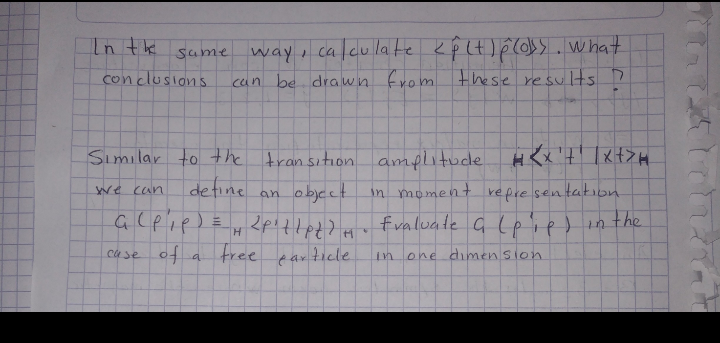 In the same way, calculate <p̂(t)p̂(0)>. What
conclusions can be drawn from these results?
Similar to the transition amplitude H<x't'|xt>H
we can define an object in moment representation
G(p',p) ≡ H<p't|pt>H. Evaluate G(p',p) in the
case of a free particle in one dimension